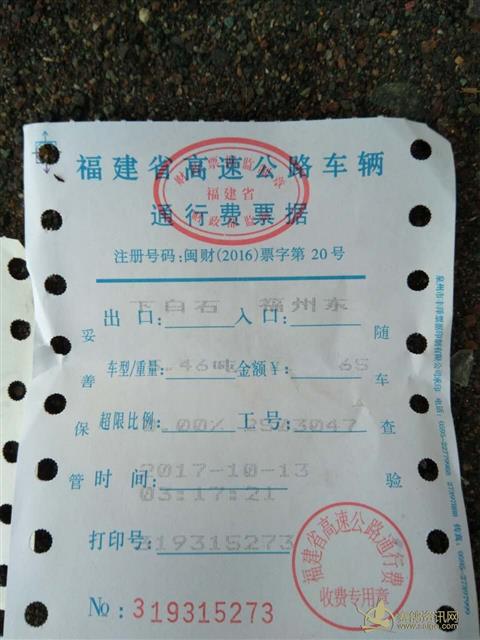 福建省高速公路车辆
通行费票据
福建省
注册号码:闽财(2016)票字第20号
下白石 福州东
出口: 入口:
车型/重量: .46吨 金额¥: 65
超限比例: .00% 工号: 3047
时间: 2017-10-13
03:17:21
打印号: 319315273
№: 319315273
妥善保管
随车查验
福建省高速公路通行费
收费专用章